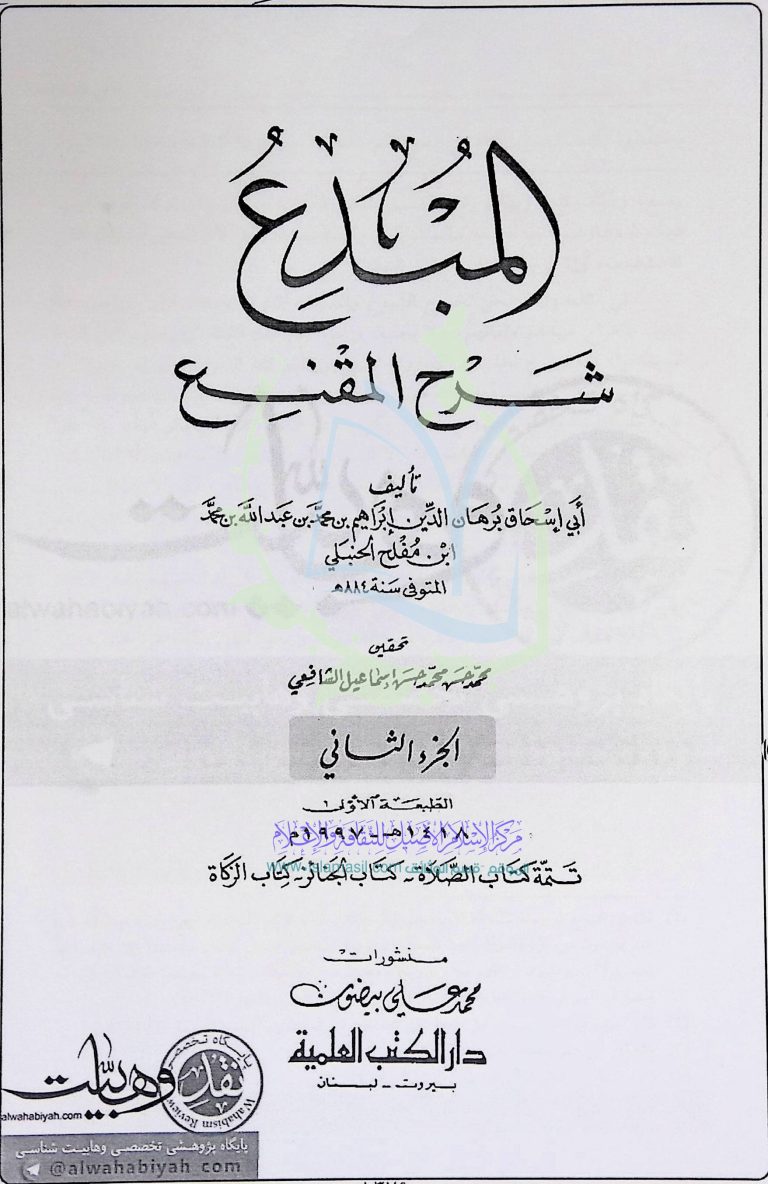 المُبْدِعُ
شَرح المقْنِع
تأليف
أَبي إسْحَاق بُرهَان الدِّين إبْرَاهِيم بن محمَّد بن عَبد الله بن محمَّد
ابن مُفْلح الحَنبَلي
المتوفى سَنة ٨٨٤ هـ
تحقيق
محمّد حسَن محمّد حسَن إسماعيل الشافِعي
الجزء الثاني
الطبعة الأولى
١٤١٨ هـ - ١٩٩٧ م
مركز الإسلام الأصيل للثقافة والإعلام
www.islamasil.com
تَتمّة كتاب الصَّلاة - كتاب الجنائز - كتاب الزكاة
منشورات
محمد علي بيضون
دار الكتب العلمية
بيروت - لبنان
پایگاه تخصصی
نقد
وهابیت
Wahabism Review
alwahabiyah.com
پایگاه پژوهشی تخصصی وهابیت شناسی
@alwahabiyah_com